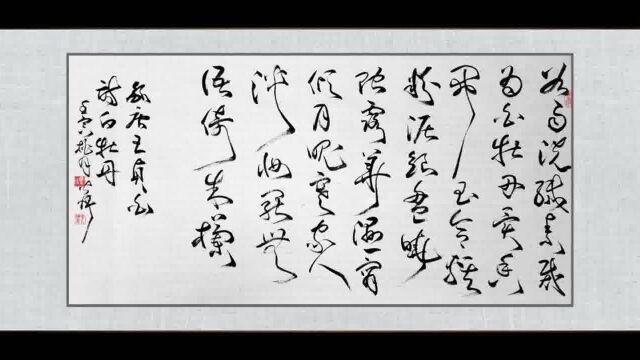 谷雨洗纖素裁
为白牡丹異香
開玉合輕
粉泥銀盤曉
貯露華濕宵
傾月魄寒家人
淡妝罷無
語倚朱欄
錄唐王貞白
詩白牡丹
壬寅桃月